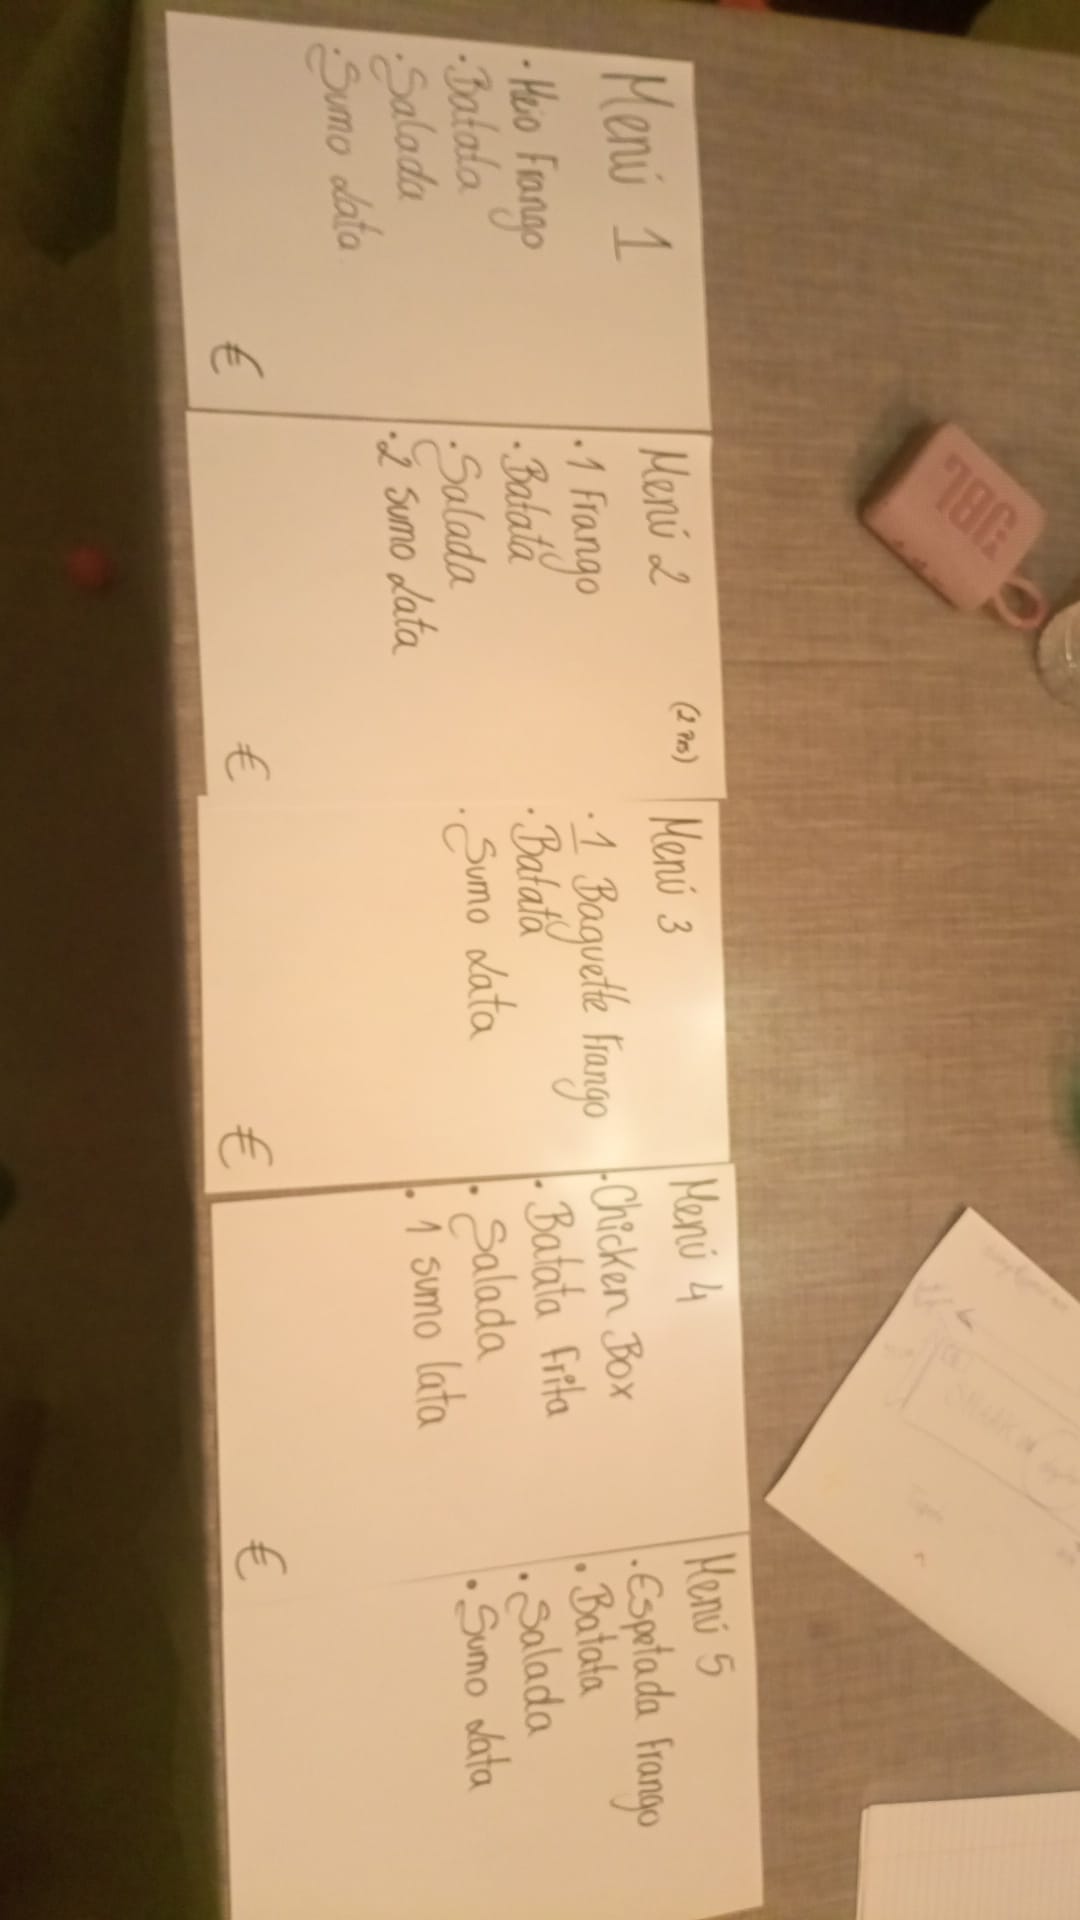 JBL
Menú 1
· Meio Frango
· Batata
· Salada
· Sumo Lata
€
Menú 2 (2 Prs)
· 1 Frango
· Batata
· Salada
· 2 Sumo Lata
€
Menú 3
· 1 Baguette Frango
· Batata
· Sumo Lata
€
Menú 4
· Chicken Box
· Batata Frita
· Salada
· 1 sumo lata
€
Menú 5
· Espetada Frango
· Batata
· Salada
· Sumo Lata